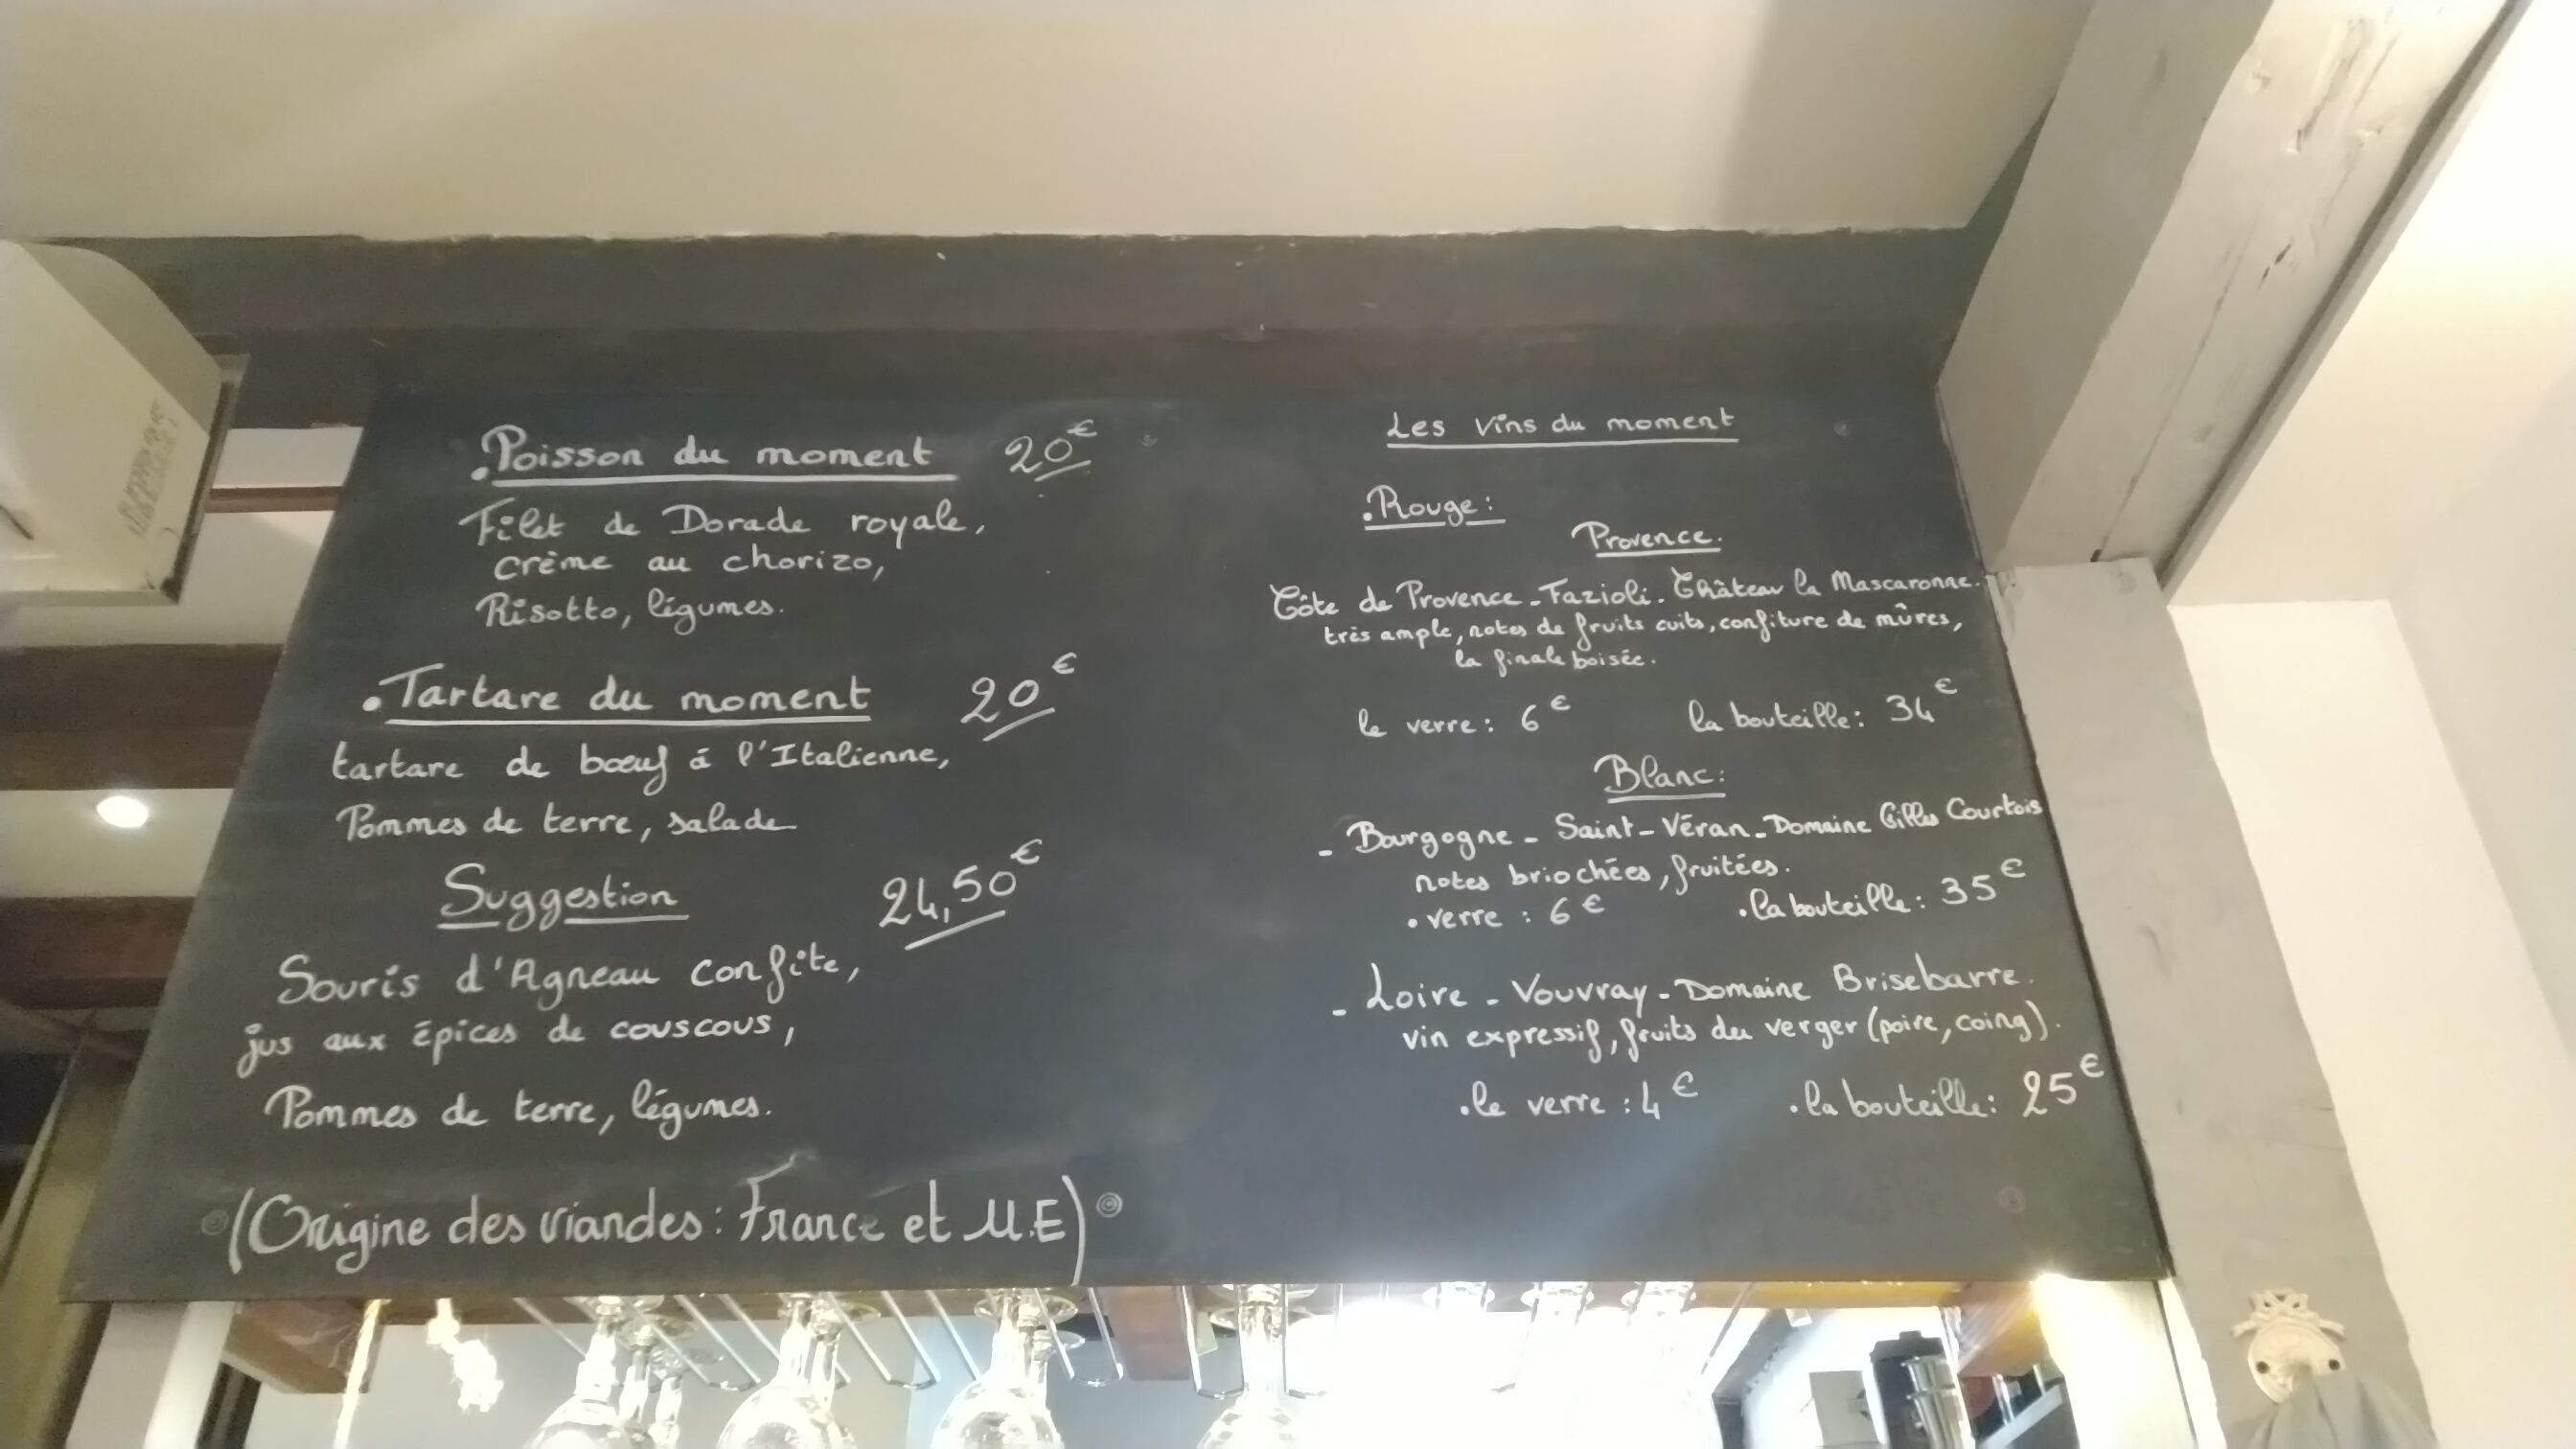 .Poisson du moment 20€
Filet de Dorade royale,
crème au chorizo,
Risotto, légumes.
.Tartare du moment 20€
tartare de bœuf à l'Italienne,
Pommes de terre, salade
Suggestion 24,50€
Souris d'Agneau confite,
jus aux épices de couscous,
Pommes de terre, légumes.
(Origine des viandes : France et U.E)
Les vins du moment
.Rouge :
Provence.
Côte de Provence - Fazioli - Château la Mascaronne.
très ample, notes de fruits cuits, confiture de mûres,
la finale boisée.
le verre : 6€ la bouteille : 34€
Blanc :
- Bourgogne - Saint-Véran - Domaine Gilles Courtois
notes briochées, fruitées.
. verre : 6€ .la bouteille : 35€
- Loire - Vouvray - Domaine Brisebarre.
vin expressif, fruits du verger (poire, coing).
.le verre : 4€ .la bouteille : 25€